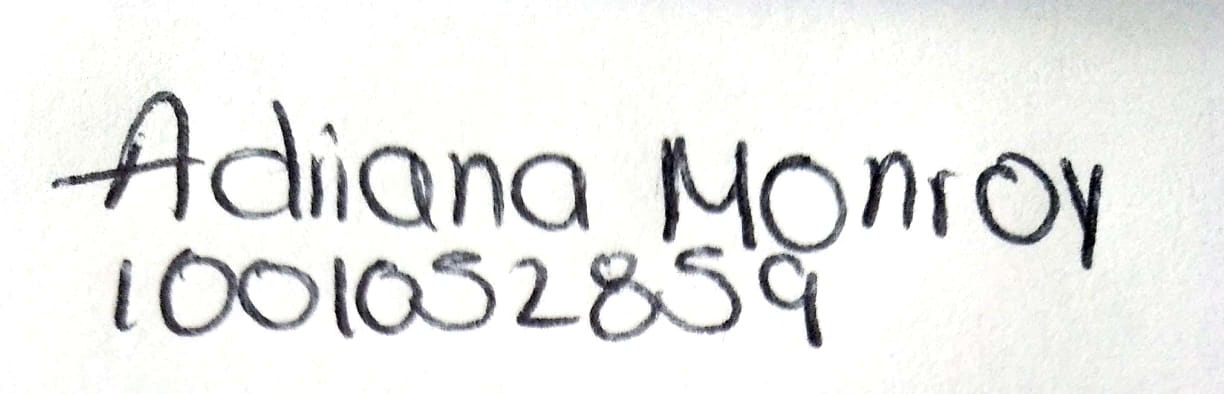 Adriana Monroy
1001052859